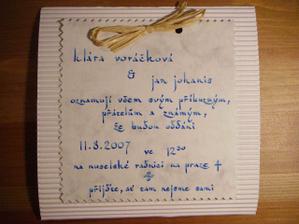 klára voráčková
& jan johanis
oznamují všem svým příbuzným,
přátelům a známým,
že budou oddáni
11.8.2007 ve 12⁰⁰
na nuselské radnici na praze 4
přijďte, ať tam nejsme sami